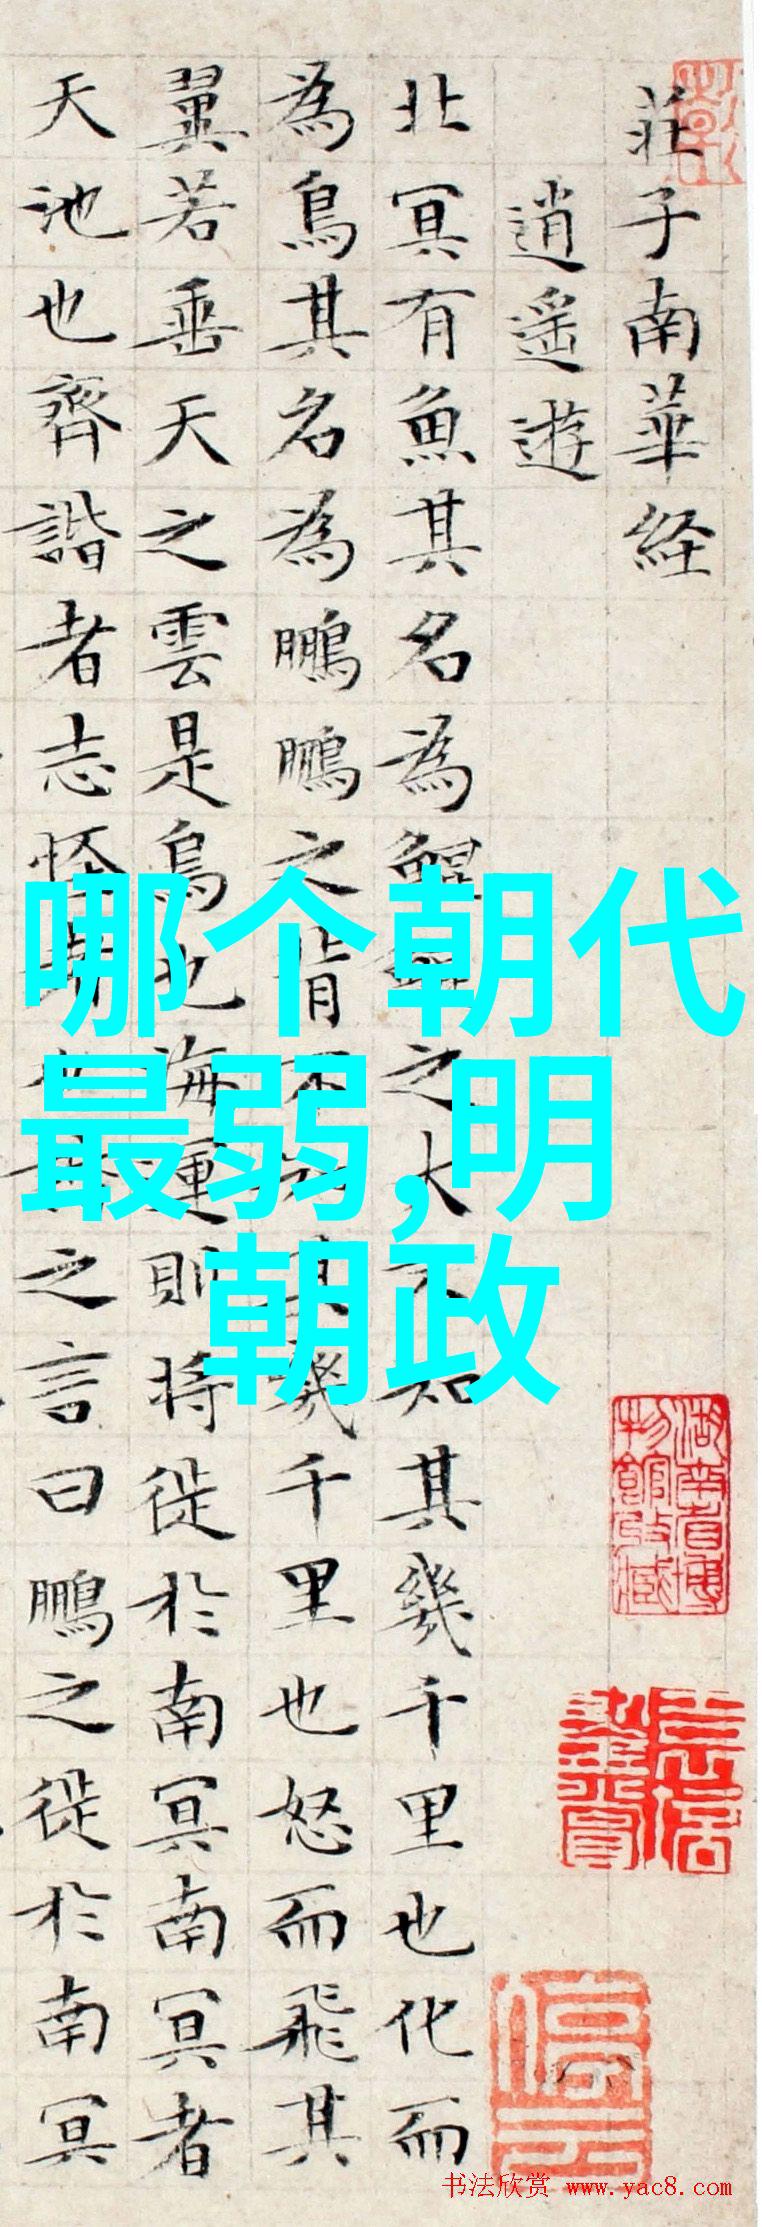 莊子南華経
逍遥遊
北冥有魚其名為鯤鯤之大不知其幾千里也化而
為鳥其名為鵬鵬之背不知其幾千里也怒而飛其
翼若垂天之雲是鳥也海運則將徙於南冥南冥者
天池也齊諧者志怪者也諧之言曰鵬之徙於南冥
哪个朝代
最弱,明
朝政
湖南省博
物館收藏
书法欣赏 www.yac8.com